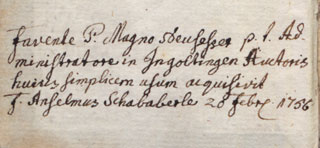 favente P. Magno p. t. Ad-
ministratore in Ingoltingen Auctoris
huius simplicem usum acquisivit
f. Anselmus Schababerle 28 febr. 1756